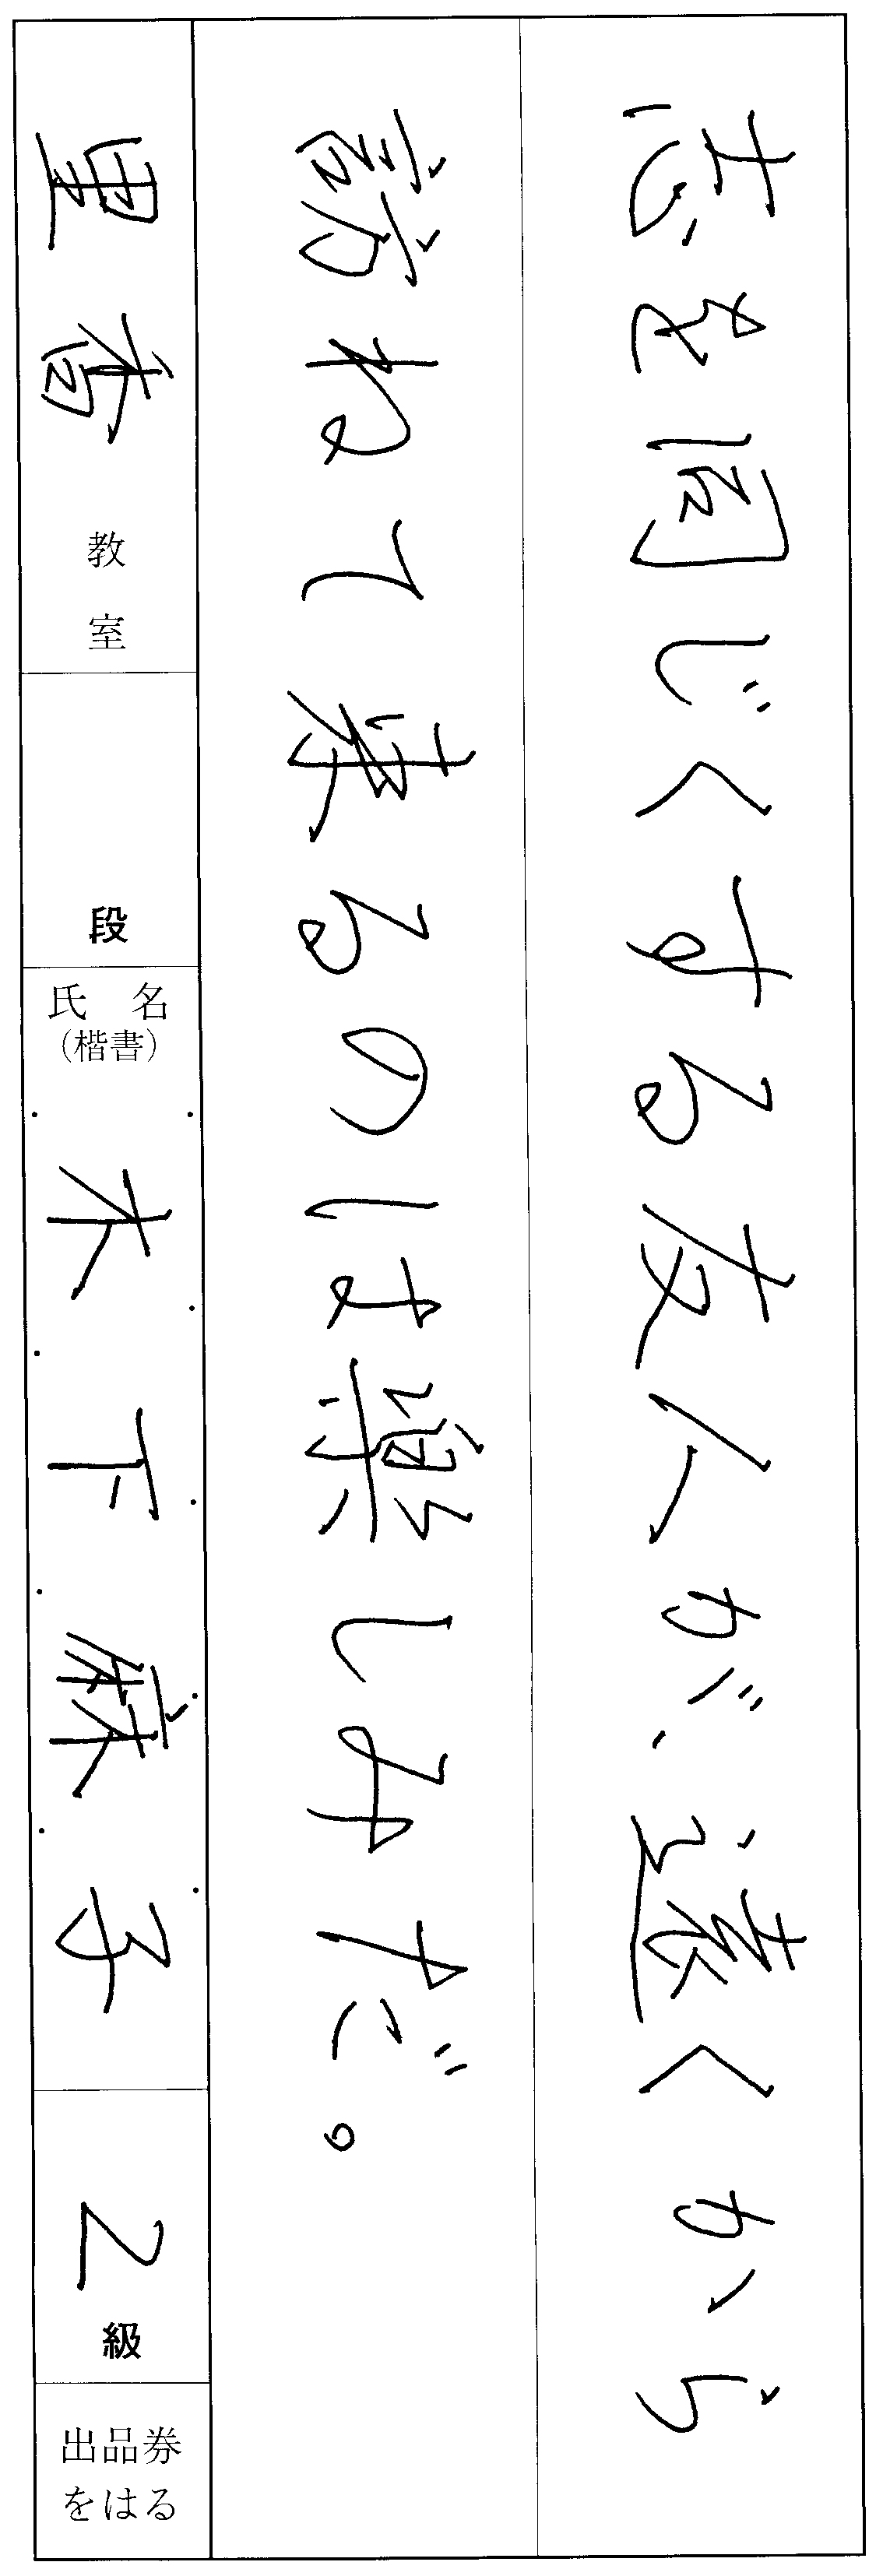 志を同じくする友人が、遠くから
訪ねて来るのは楽しみだ。
里香教室
段
氏名
(楷書)
木下麻子
2級
出品券
をはる